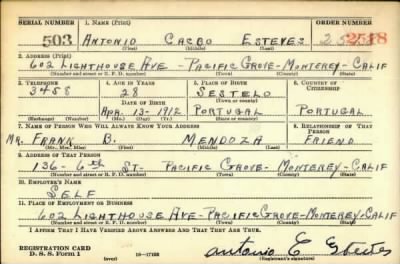 SERIAL NUMBER 1. NAME (Print) ORDER NUMBER
503 ANTONIO CACBO ESTEVES 2518
(First) (Middle) (Last)
2. ADDRESS (Print)
602 LIGHTHOUSE AVE - PACIFIC GROVE - MONTEREY - CALIF
(Number and street or R. F. D. number) (Town) (County) (State)
3. TELEPHONE 4. AGE IN YEARS 5. PLACE OF BIRTH 6. COUNTRY OF CITIZENSHIP
3458 28 SESTELO
DATE OF BIRTH (Town or county)
APR. 13-1912 PORTUGAL PORTUGAL
(Exchange) (Number) (Mo.) (Day) (Yr.) (State or country)
7. NAME OF PERSON WHO WILL ALWAYS KNOW YOUR ADDRESS 8. RELATIONSHIP OF THAT PERSON
MR. FRANK B. MENDOZA FRIEND
(Mr., Mrs., Miss) (First) (Middle) (Last)
9. ADDRESS OF THAT PERSON
136- 6TH ST- PACIFIC GROVE- MONTEREY-CALIF
(Number and street or R. F. D. number) (Town) (County) (State)
10. EMPLOYER'S NAME
SELF
11. PLACE OF EMPLOYMENT OR BUSINESS
602 LIGHTHOUSE AVE-PACIFIC GROVE-MONTEREY-CALIF
(Number and street or R. F. D. number) (Town) (County) (State)
I AFFIRM THAT I HAVE VERIFIED ABOVE ANSWERS AND THAT THEY ARE TRUE.
REGISTRATION CARD
D. S. S. FORM 1 (over) 16-17105 Antonio C Esteves
(Registrant's signature)